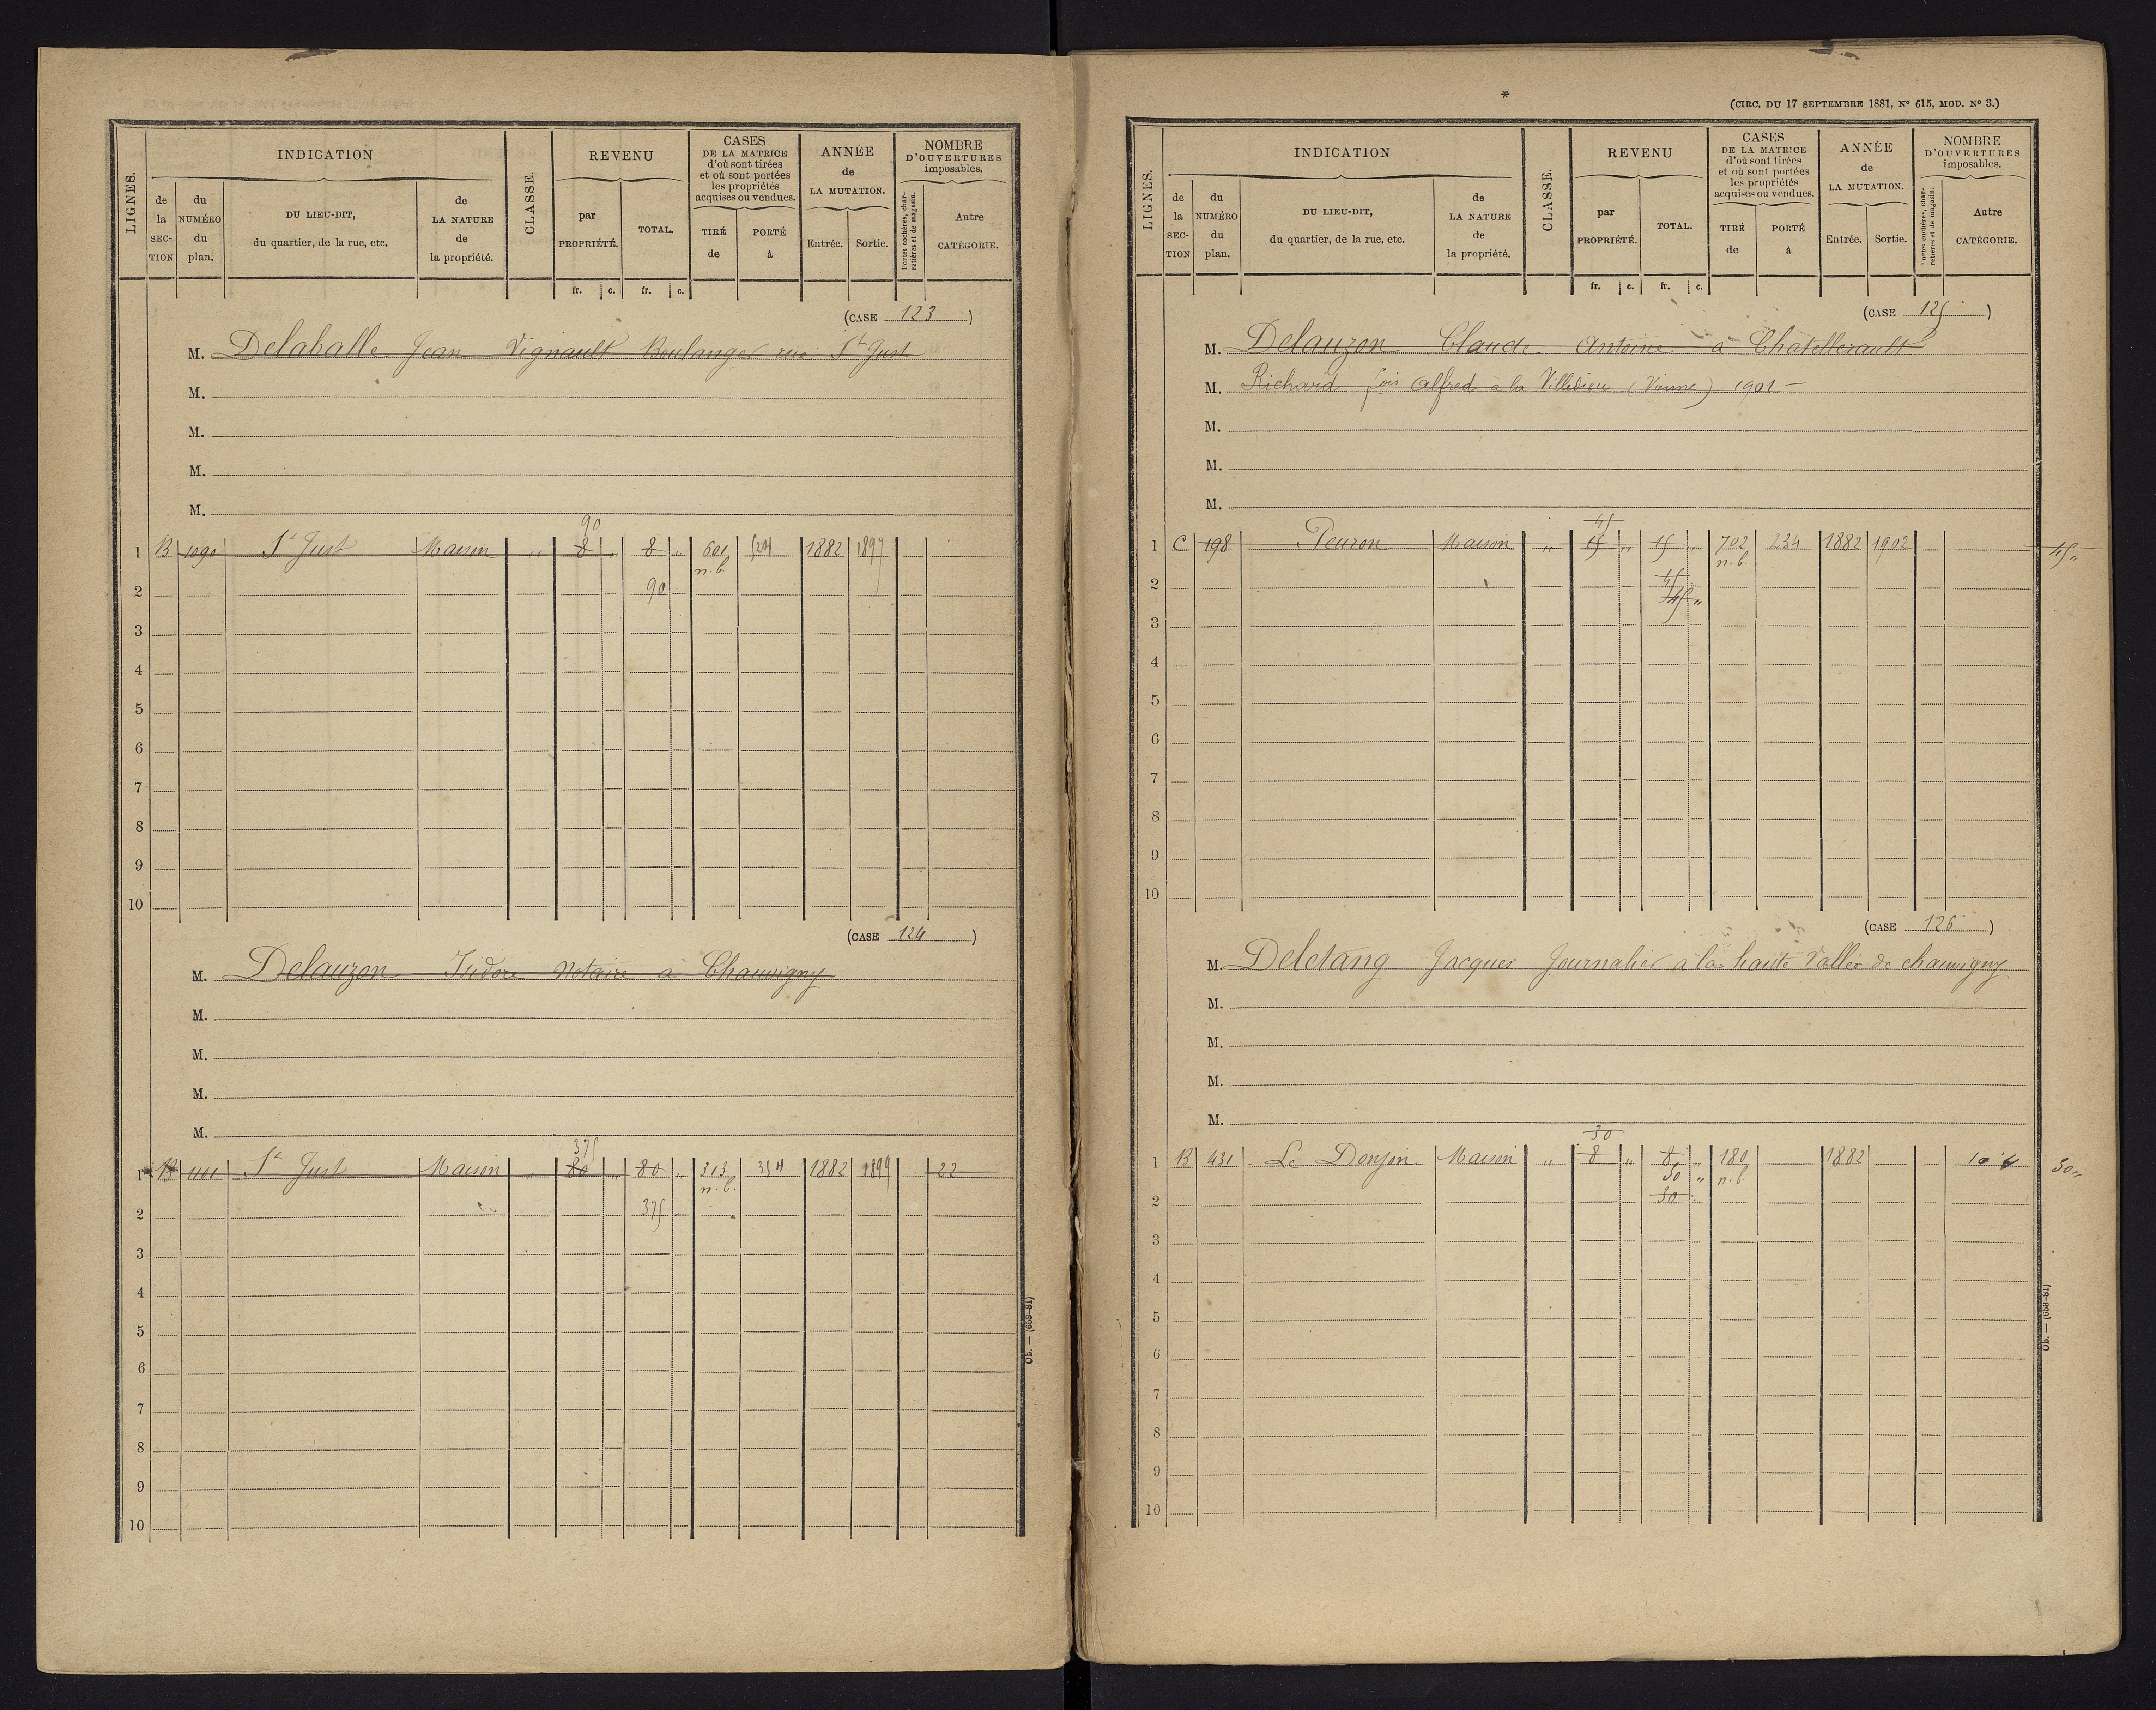 LIGNES.
INDICATION
de la SECTION
du NUMÉRO du plan.
DU LIEU-DIT, du quartier, de la rue, etc.
de LA NATURE de la propriété.
CLASSE.
REVENU
par PROPRIÉTÉ.
TOTAL.
CASES DE LA MATRICE d'où sont tirées et où sont portées les propriétés acquises ou vendues.
TIRÉ de
PORTÉ à
ANNÉE de LA MUTATION.
Entrée.
Sortie.
NOMBRE D'OUVERTURES imposables.
Portes cochères, charretières et de magasin.
Autre CATÉGORIE.
fr. c. fr. c.
(CASE 123)
M. Delaballe Jean Vignault Boulanger rue St Just
M.
M.
M.
M.
90
1 B 1090 St Just Maison " 8 " 8 " 601 524 1882 1897
n.b.
2 90
3
4
5
6
7
8
9
10
(CASE 124)
M. Delauzon Isidore Notaire à Chauvigny
M.
M.
M.
M.
375
1 B 1101 St Just Maison " 80 " 80 " 313 354 1882 1899 22
n.b.
2 375
3
4
5
6
7
8
9
10
Ob. — (659-81)
*
(CIRC. DU 17 SEPTEMBRE 1881, N° 615, MOD. N° 3.)
LIGNES.
INDICATION
de la SECTION
du NUMÉRO du plan.
DU LIEU-DIT, du quartier, de la rue, etc.
de LA NATURE de la propriété.
CLASSE.
REVENU
par PROPRIÉTÉ.
TOTAL.
CASES DE LA MATRICE d'où sont tirées et où sont portées les propriétés acquises ou vendues.
TIRÉ de
PORTÉ à
ANNÉE de LA MUTATION.
Entrée.
Sortie.
NOMBRE D'OUVERTURES imposables.
Portes cochères, charretières et de magasin.
Autre CATÉGORIE.
fr. c. fr. c.
(CASE 125)
M. Delauzon Claude Antoine à Chatellerault
M. Richard fois Alfred à la Villedieu (Vienne) - 1901 -
M.
M.
M.
45
1 C 198 Peuron Maison " 15 " 15 " 702 234 1882 1902 45 "
n.b.
2 45
45 "
3
4
5
6
7
8
9
10
(CASE 126)
M. Deletang Jacques Journalier à la haute Vallée de chauvigny
M.
M.
M.
M.
30
1 B 431 Le Donjon Maison " 8 " 8 " 180 1882 30 "
30 " n.b.
2 30
3
4
5
6
7
8
9
10
Ob. — (659-81)